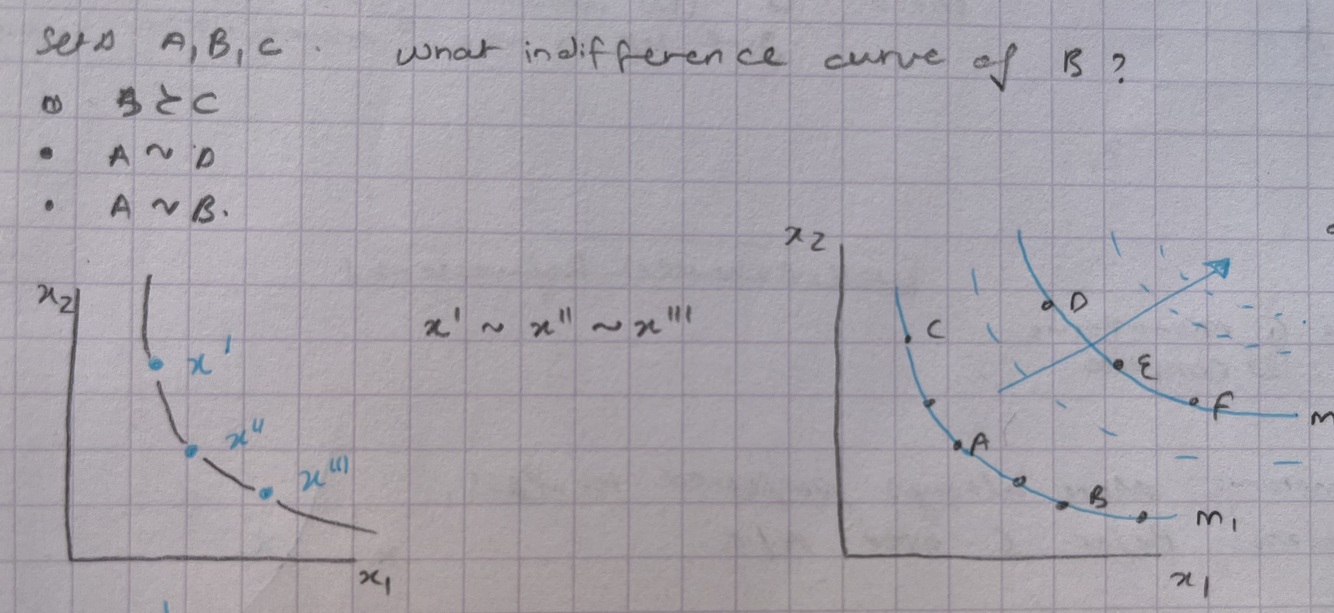 Sets A, B, C. What indifference curve of B?
B ≿ C
• A ~ D
• A ~ B.
x2
x'
x''
x'''
x1
x' ~ x'' ~ x'''
x2
C
D
E
F
A
B
M
M1
x1